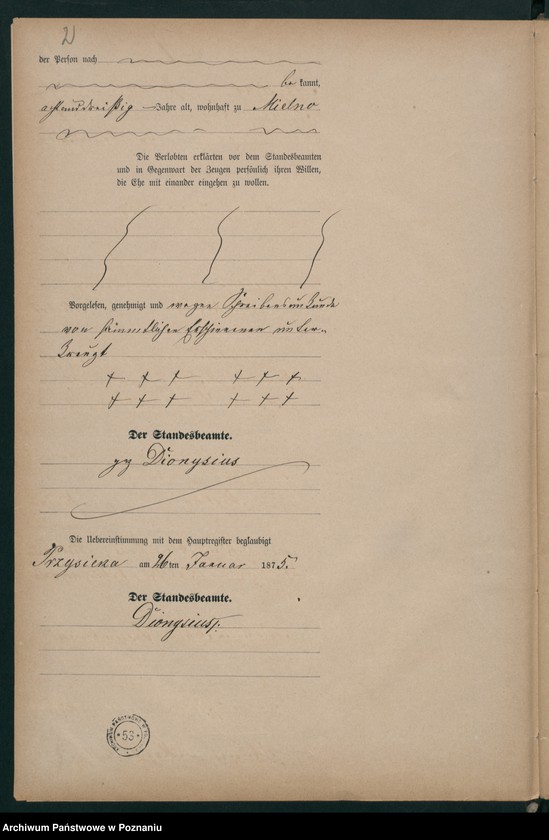 2
der Person nach
be kannt,
achtunddreißig Jahre alt, wohnhaft zu Mielno
Die Verlobten erklärten vor dem Standesbeamten
und in Gegenwart der Zeugen persönlich ihren Willen,
die Ehe mit einander eingehen zu wollen.
Vorgelesen, genehmigt und wegen Schreibensunkunde
von sämmtlichen Erschienenen unter-
kreuzt
+ + + + + +
+ + + + + +
Der Standesbeamte.
gez Dionysius
Die Uebereinstimmung mit dem Hauptregister beglaubigt
Przysieka am 26ten Januar 1875.
Der Standesbeamte.
Dionysius
53
Archiwum Państwowe w Poznaniu